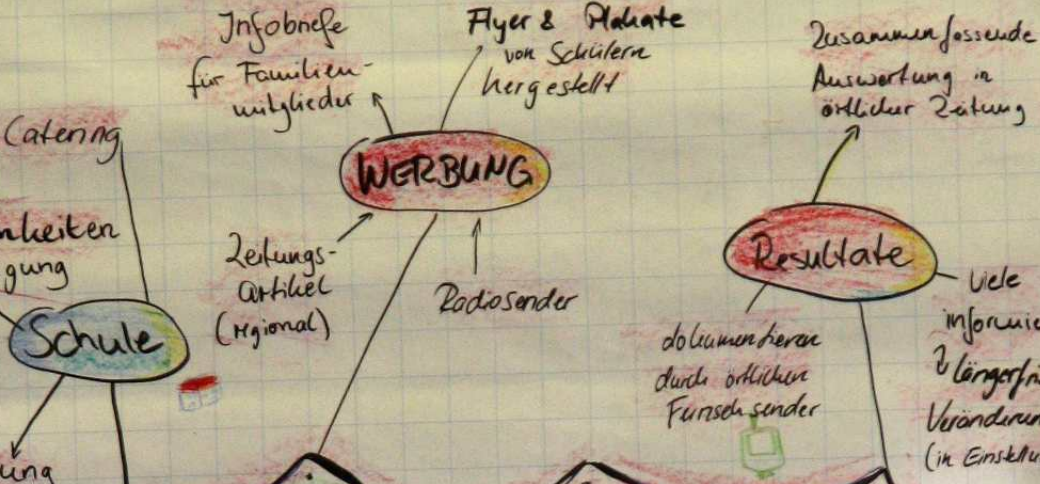 Infobriefe
für Familien-
mitglieder
Flyer & Plakate
von Schülern
hergestellt
Zusammenfassende
Auswertung in
örtlicher Zeitung
Catering
WERBUNG
nkeiten
gung
Zeitungs-
artikel
(regional)
Radiosender
Resultate
Viele
informie
längerfri
Veränderun
(in Einstellu
dokumentieren
durch örtlichen
Fernsehsender
Schule
ung